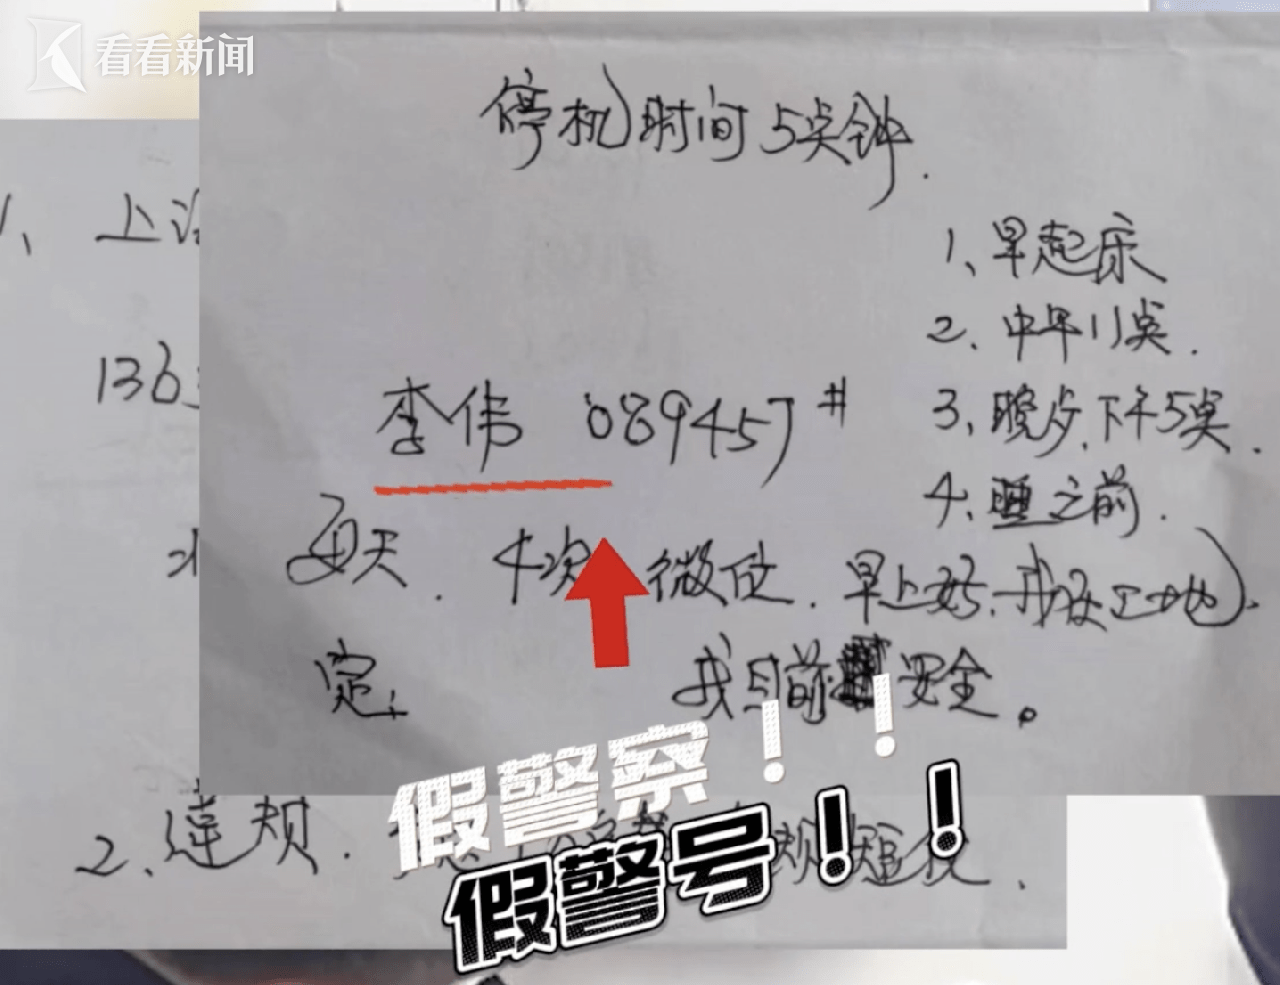 看看新闻
停机时间5分钟.
1、早起床
2、中午11点.
李伟 089457#
3、晚步,下午5点.
4、睡之前.
每天. 4次 微信. 早上好.我在工地.
定. 我目前安全。
1、上海
136
2、违规.
假警察！！
假警号！！
规短